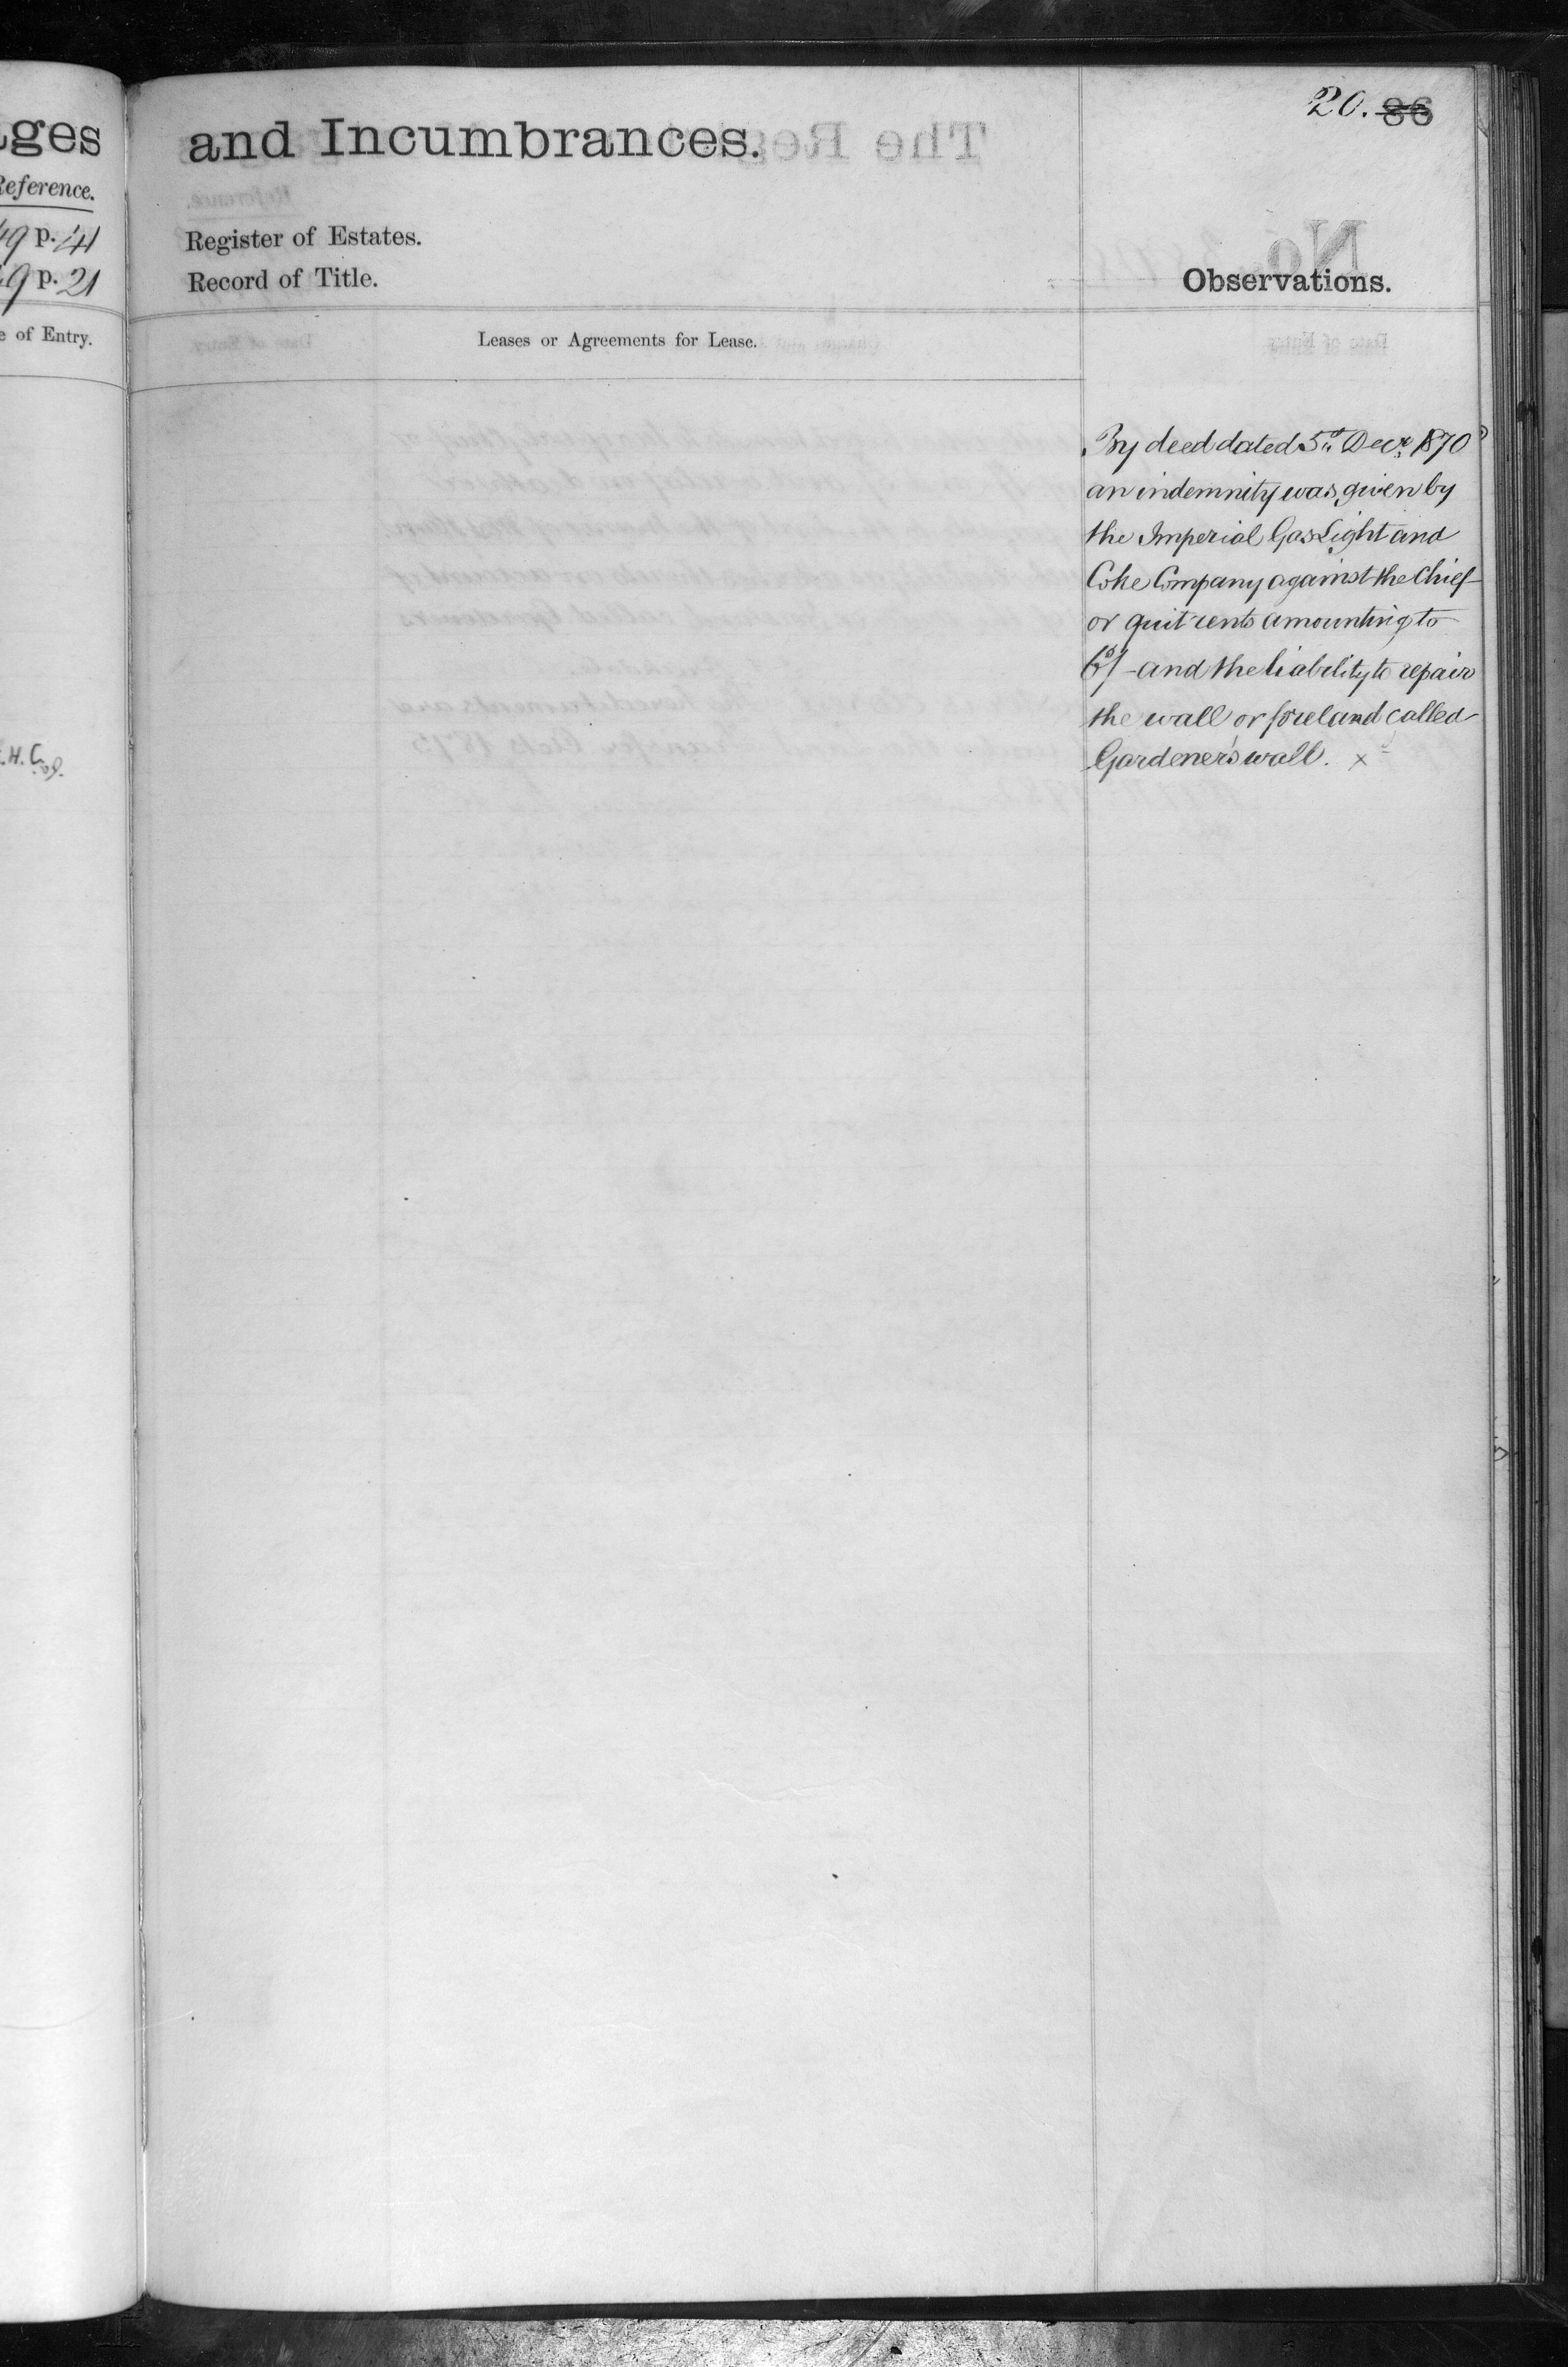 ges
Reference.
49 p. 41
49 p. 21
e of Entry.
.H.C.
20. 86
and Incumbrances.
Register of Estates.
Record of Title.
Observations.
Leases or Agreements for Lease.
By deed dated 5th Decr. 1870
an indemnity was given by
the Imperial Gas Light and
Coke Company against the Chief
or quit rents amounting to
6s/- and the liability to repair
the wall or foreland called
Gardener's wall. x